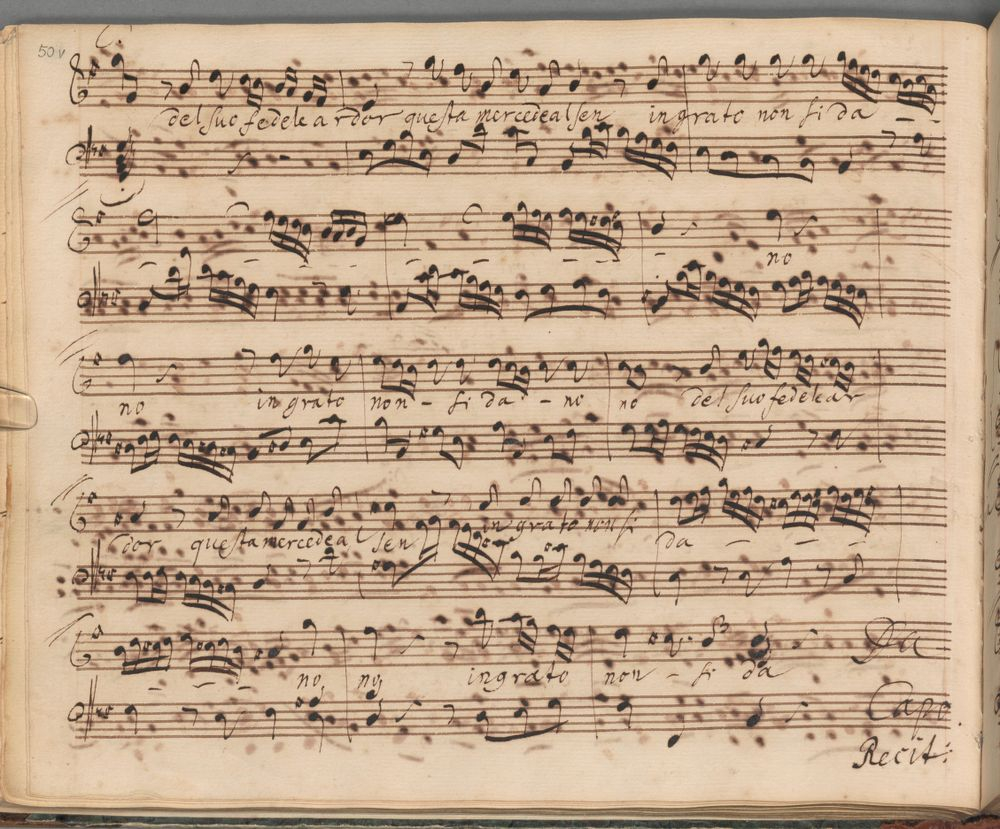 50v
C.
del suo fedele ardor questa mercede al sen ingrato non si da
no
no ingrato non - si da - no no del suo fedele ar
dor questa mercede al sen ingrato non si da
no, no, ingrato non - si da
Da
Capo
Recit: